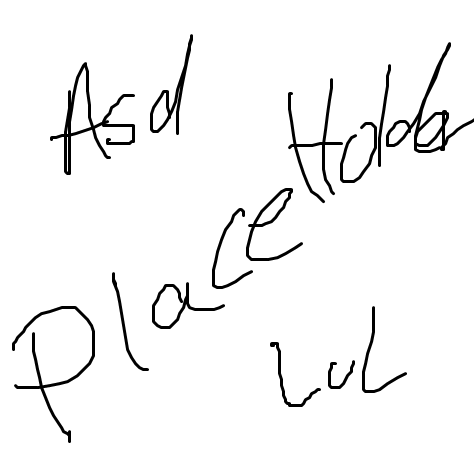 Asd
PlaceHolder
LoL